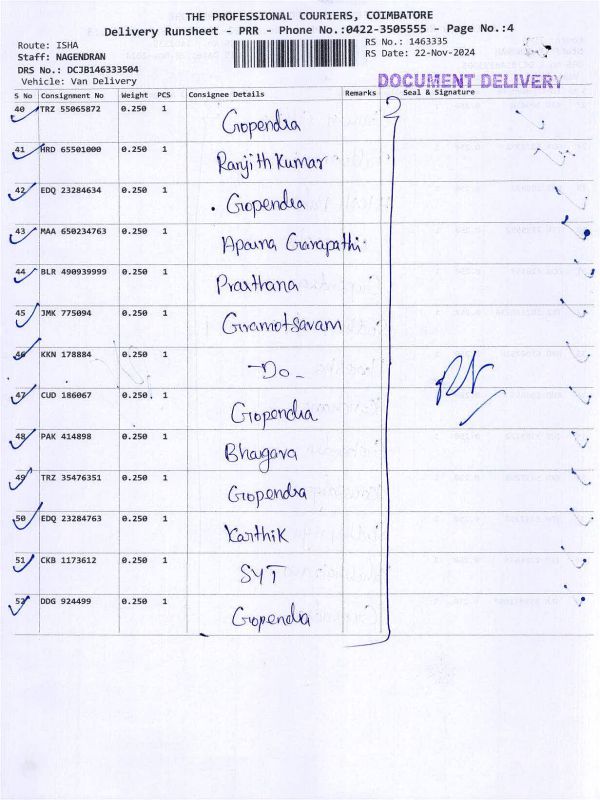 THE PROFESSIONAL COURIERS, COIMBATORE
Delivery Runsheet - PRR - Phone No.:0422-3505555 - Page No.:4
Route: ISHA
Staff: NAGENDRAN
DRS No.: DCJB146333504
Vehicle: Van Delivery
RS No.: 1463335
RS Date: 22-Nov-2024
DOCUMENT DELIVERY
S No Consignment No Weight PCS Consignee Details Remarks Seal & Signature
40 TRZ 55065872 0.250 1 Gopendra
41 HRD 65501000 0.250 1 Ranjith Kumar
42 EDQ 23284634 0.250 1 Gopendra
43 MAA 650234763 0.250 1 Aparna Ganapathi
44 BLR 490939999 0.250 1 Prarthana
45 JMK 775094 0.250 1 Gramotsavam
46 KKN 178884 0.250 1 -Do-
47 CUD 186067 0.250 1 Gopendra
48 PAK 414898 0.250 1 Bhagava
49 TRZ 35476351 0.250 1 Gopendra
50 EDQ 23284763 0.250 1 Karthik
51 CKB 1173612 0.250 1 SYT
52 DDG 924499 0.250 1 Gopendra